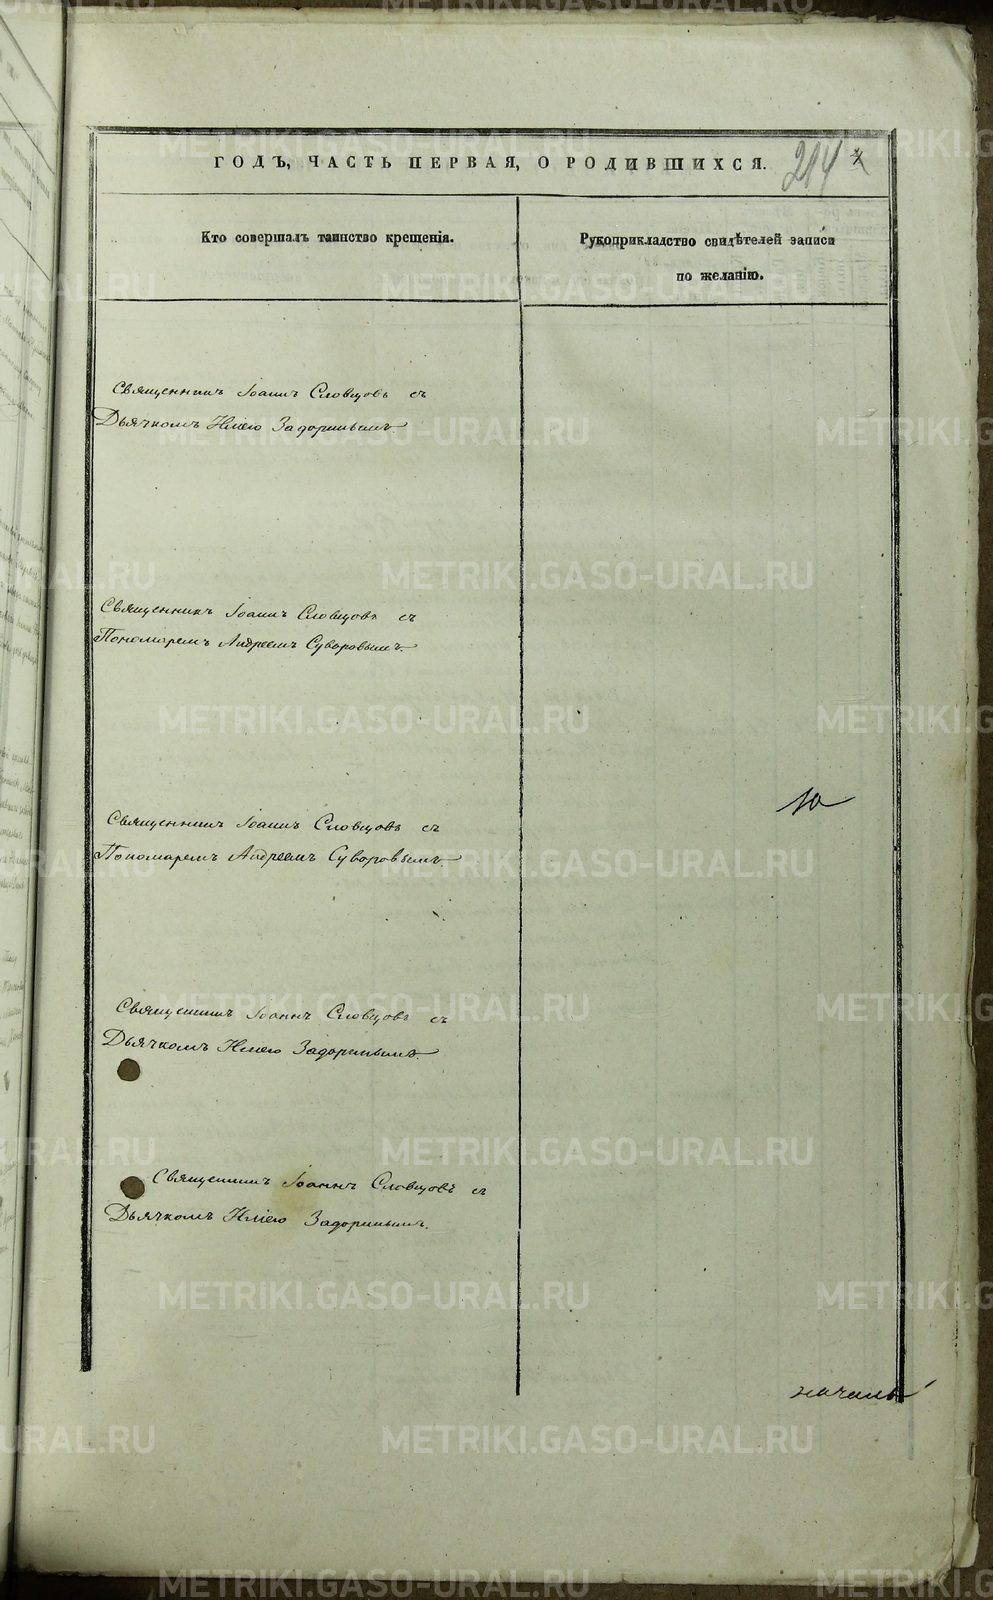 ГОДЪ, ЧАСТЬ ПЕРВАЯ, О РОДИВШИХСЯ.
214
Кто совершалъ таинство крещенія.
Рукоприкладство свидѣтелей записи
по желанію.
Священникъ Іоаннъ Словцовъ съ
Дьячкомъ Иліею Задоринымъ
Священникъ Іоаннъ Словцовъ съ
Пономаремъ Андреемъ Суворовымъ.
Священникъ Іоаннъ Словцовъ съ
Пономаремъ Андреемъ Суворовымъ.
Священникъ Іоаннъ Словцовъ съ
Дьячкомъ Иліею Задоринымъ.
Священникъ Іоаннъ Словцовъ съ
Дьячкомъ Иліею Задоринымъ.
METRIKI.GASO-URAL.RU